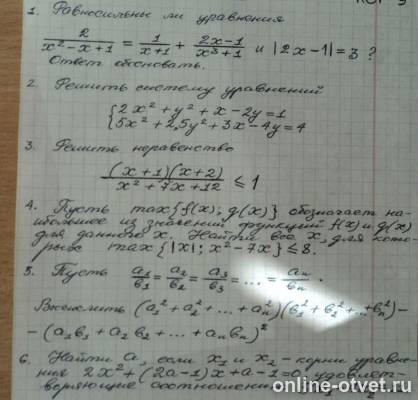 1. Равносильны ли уравнения
2/(x²-x+1) = 1/(x+1) + (2x-1)/(x³+1) и |2x-1|=3 ?
Ответ обосновать.
2. Решить систему уравнений
{2x²+y²+x-2y=1
5x²+2,5y²+3x-4y=4
3. Решить неравенство
(x+1)(x+2)/(x²+7x+12) ≤ 1
4. Пусть max{f(x); g(x)} обозначает на-
ибольшее из значений функций f(x) и g(x)
для данного x. Найти все x, для кото-
рых max{|x|; x²-7x} ≤ 8.
5. Пусть a₁/b₁ = a₂/b₂ = a₃/b₃ = ... = aₙ/bₙ.
Вычислить (a₁²+a₂²+...+aₙ²)(b₁²+b₂²+...+bₙ²)-
-(a₁b₁+a₂b₂+...+aₙbₙ)²
6. Найти a, если x₁ и x₂ - корни уравне-
ния 2x²+(2a-1)x+a-1=0, удовлет-
воряющие соотношению
online-otvet.ru